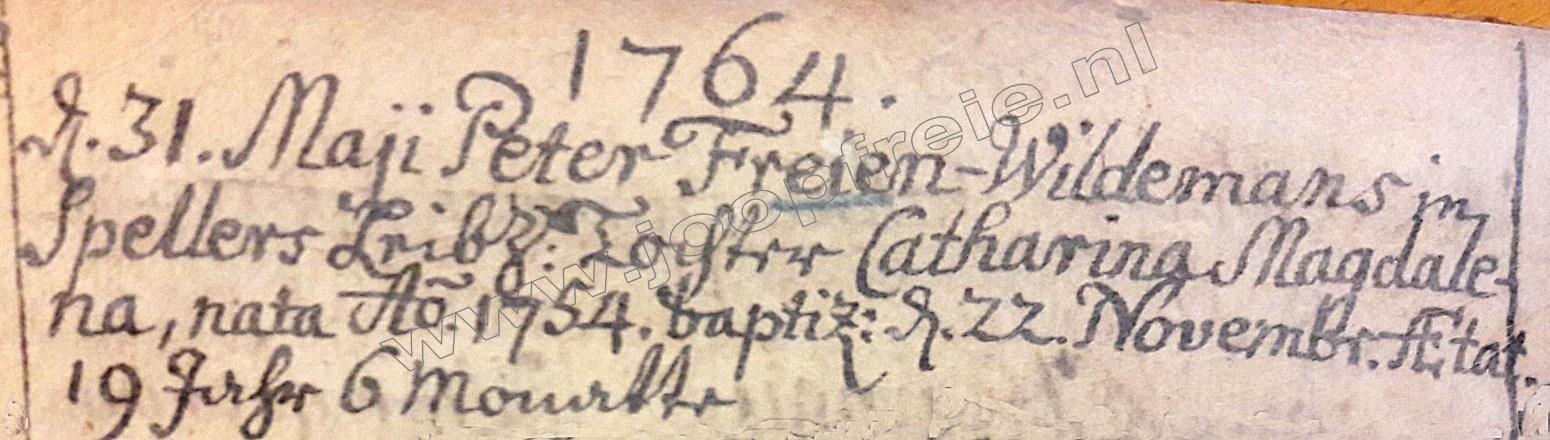 1764.
d. 31. Maji Peter Freien-Wildemans in
Spellers Leibz: Tochter Catharina Magdale-
na, nata Aõ. 1754. baptiz: d. 22. Novembr. Ætat.
19 Jahr 6 Monatte
www.joopfreie.nl